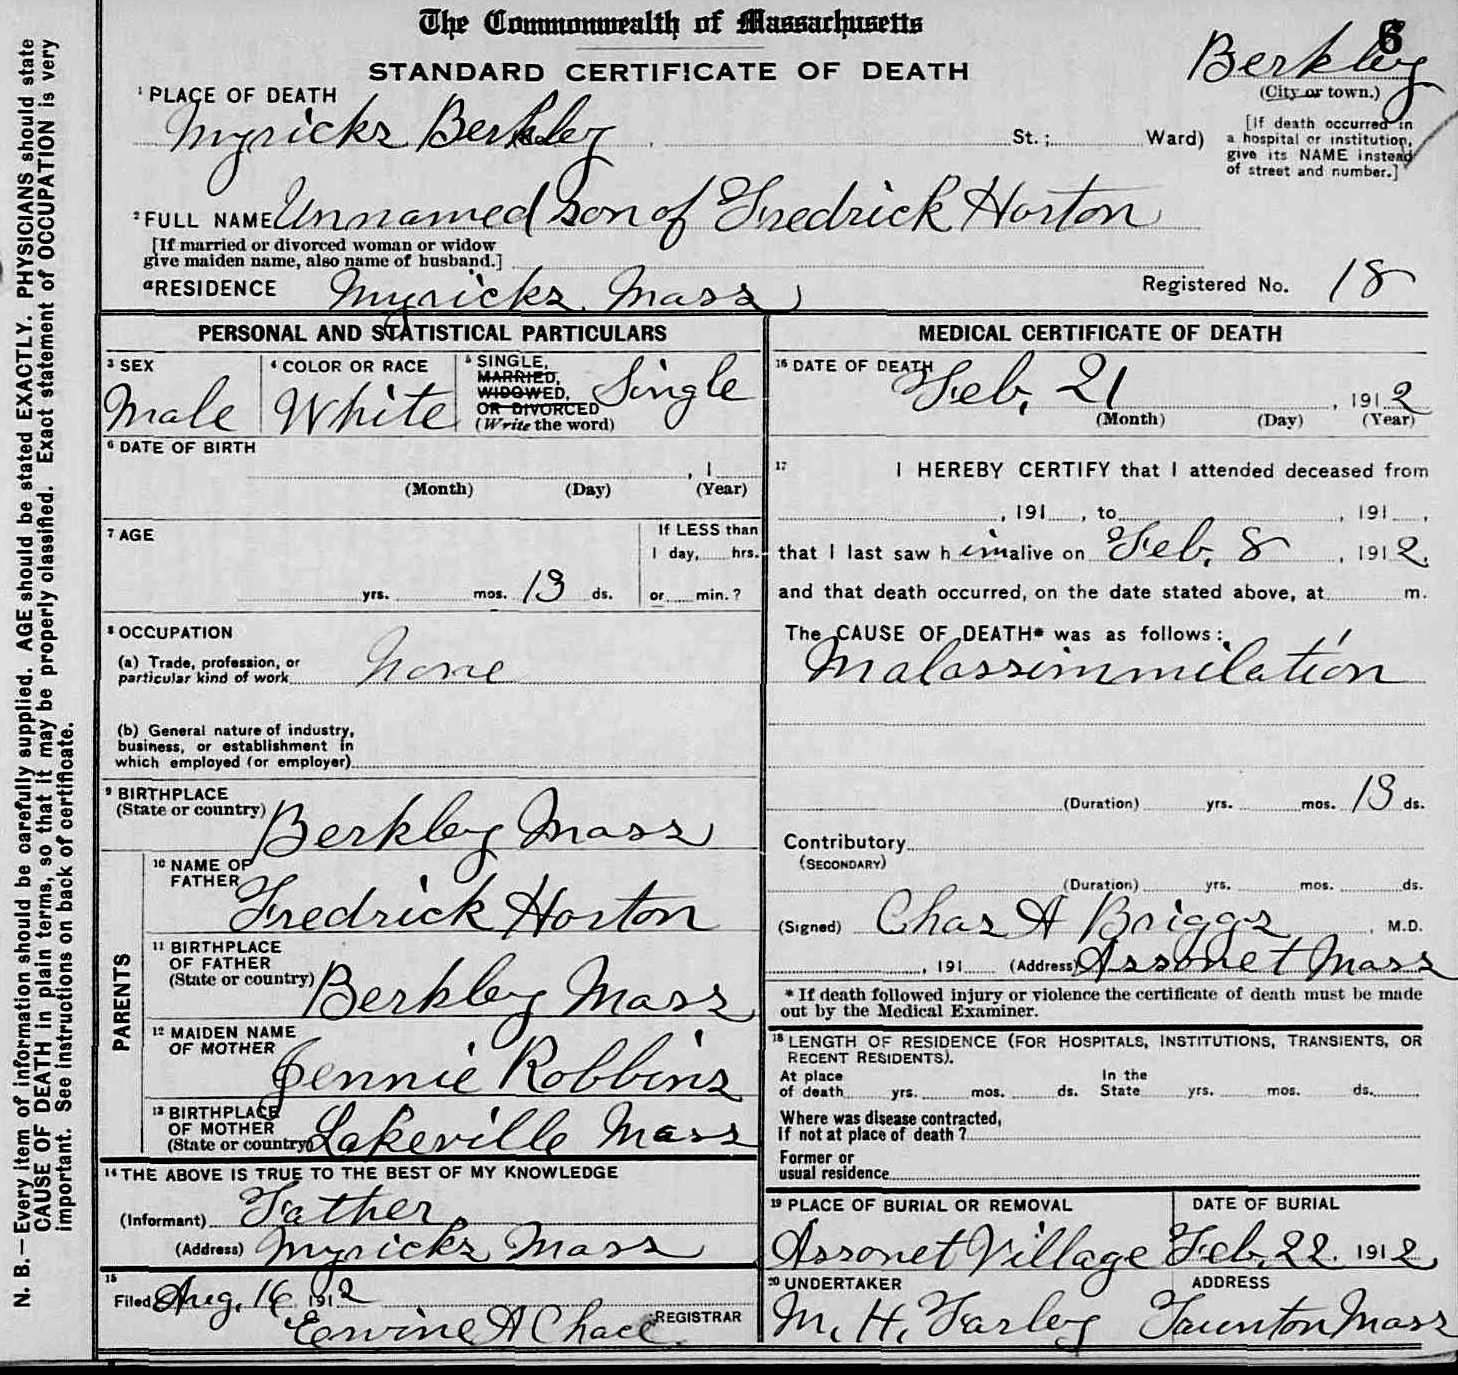 The Commonwealth of Massachusetts
6
STANDARD CERTIFICATE OF DEATH
Berkley
(City or town.)
1 PLACE OF DEATH
Myricks Berkley St.; Ward)
[If death occurred in
a hospital or institution,
give its NAME instead
of street and number.]
2 FULL NAME Unnamed son of Fredrick Horton
[If married or divorced woman or widow
give maiden name, also name of husband.]
a RESIDENCE Myricks Mass
Registered No. 18
PERSONAL AND STATISTICAL PARTICULARS
3 SEX
Male
4 COLOR OR RACE
White
5 SINGLE,
MARRIED,
WIDOWED,
OR DIVORCED
(Write the word)
Single
6 DATE OF BIRTH
, 1
(Month) (Day) (Year)
7 AGE
If LESS than
1 day, hrs.
yrs. mos. 13 ds.
or min.?
8 OCCUPATION
(a) Trade, profession, or
particular kind of work None
(b) General nature of industry,
business, or establishment in
which employed (or employer)
9 BIRTHPLACE
(State or country) Berkley Mass
PARENTS
10 NAME OF
FATHER
Fredrick Horton
11 BIRTHPLACE
OF FATHER
(State or country) Berkley Mass
12 MAIDEN NAME
OF MOTHER
Jennie Robbins
13 BIRTHPLACE
OF MOTHER
(State or country) Lakeville Mass
14 THE ABOVE IS TRUE TO THE BEST OF MY KNOWLEDGE
(Informant) Father
(Address) Myricks Mass
15
Filed Aug. 16 1912
Ervine A Chace
REGISTRAR
MEDICAL CERTIFICATE OF DEATH
16 DATE OF DEATH
Feb. 21, 1912
(Month) (Day) (Year)
17 I HEREBY CERTIFY that I attended deceased from
, 191 , to , 191 ,
that I last saw h im alive on Feb. 8, 1912.
and that death occurred, on the date stated above, at m.
The CAUSE OF DEATH* was as follows:
Malassimmilation
(Duration) yrs. mos. 13 ds.
Contributory
(SECONDARY)
(Duration) yrs. mos. ds.
(Signed) Chas A Briggs, M.D.
, 191 (Address) Assonet Mass
* If death followed injury or violence the certificate of death must be made
out by the Medical Examiner.
18 LENGTH OF RESIDENCE (FOR HOSPITALS, INSTITUTIONS, TRANSIENTS, OR
RECENT RESIDENTS).
At place
of death yrs. mos. ds.
In the
State yrs. mos. ds.
Where was disease contracted,
If not at place of death?
Former or
usual residence
19 PLACE OF BURIAL OR REMOVAL
Assonet Village
DATE OF BURIAL
Feb. 22. 1912.
20 UNDERTAKER
M. H. Farley
ADDRESS
Taunton Mass
N. B.—Every item of information should be carefully supplied. AGE should be stated EXACTLY. PHYSICIANS should state
CAUSE OF DEATH in plain terms, so that it may be properly classified. Exact statement of OCCUPATION is very
important. See instructions on back of certificate.